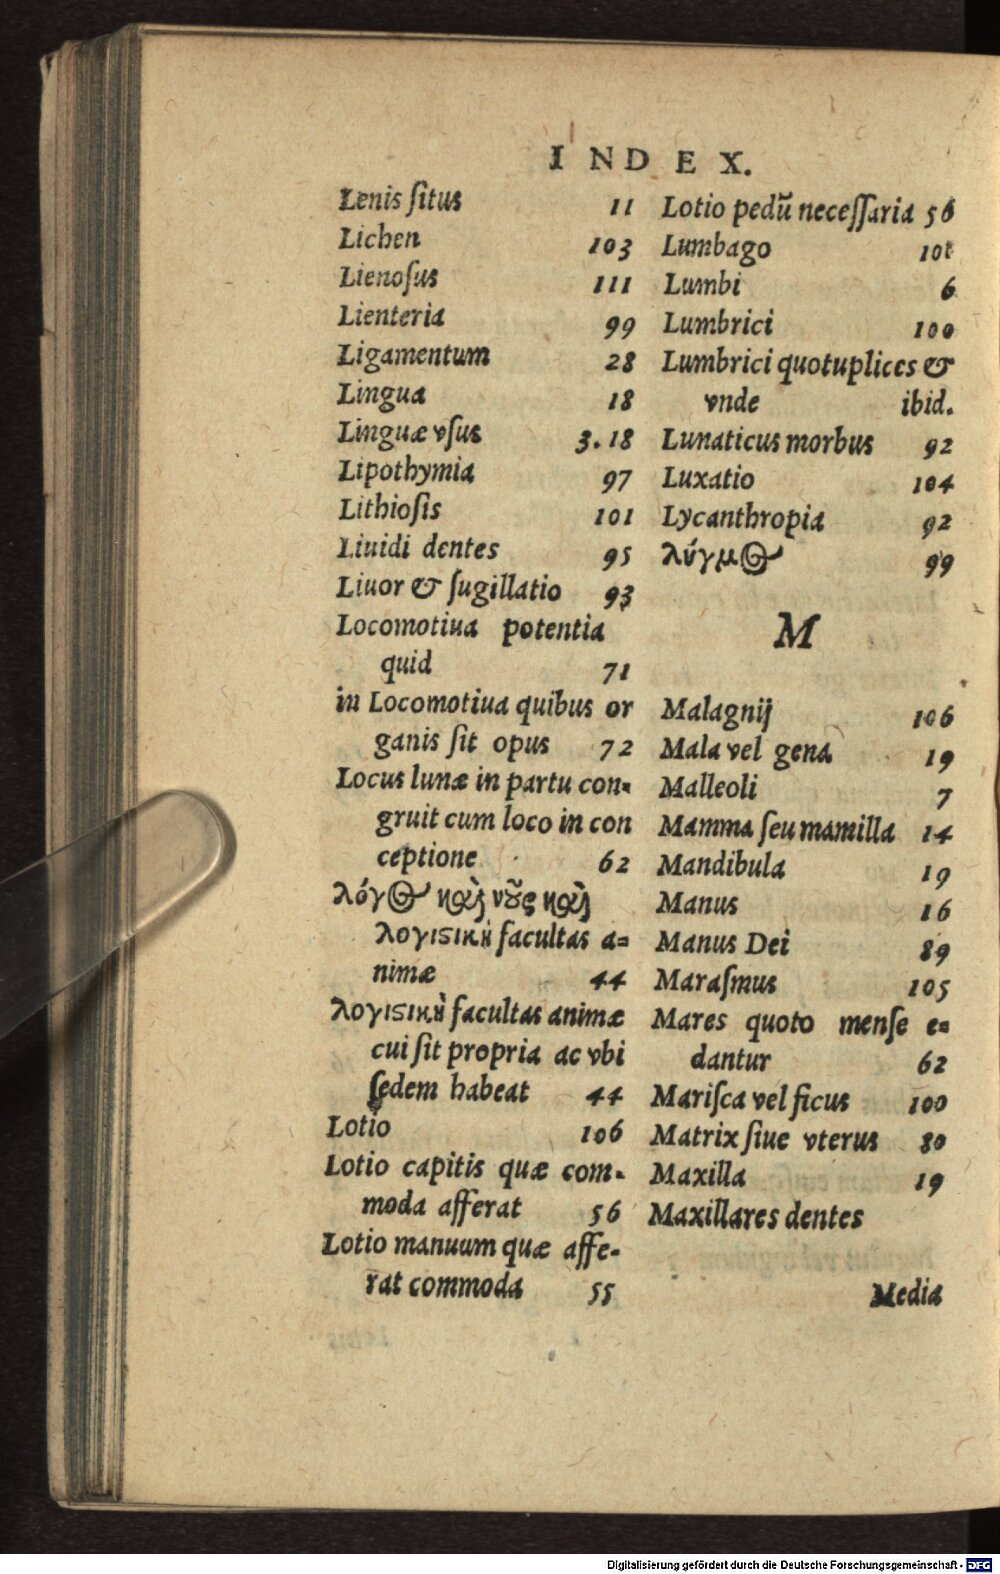 INDEX.
Lenis ſitus 11
Lichen 103
Lienoſus 111
Lienteria 99
Ligamentum 28
Lingua 18
Linguæ vſus 3. 18
Lipothymia 97
Lithioſis 101
Liuidi dentes 95
Liuor & ſugillatio 93
Locomotiua potentia
quid 71
in Locomotiua quibus or
ganis ſit opus 72
Locus lunæ in partu con-
gruit cum loco in con
ceptione 62
λόγος καὶ νοῦς καὶ
λογιστικὴ facultas a=
nimæ 44
λογιστικὴ facultas animæ
cui ſit propria ac vbi
ſedem habeat 44
Lotio 106
Lotio capitis quæ com-
moda afferat 56
Lotio manuum quæ affe-
rat commoda 55
Lotio pedū neceſſaria 56
Lumbago 101
Lumbi 6
Lumbrici 100
Lumbrici quotuplices &
vnde ibid.
Lunaticus morbus 92
Luxatio 104
Lycanthropia 92
λύγμος 99
M
Malagnij 106
Mala vel gena 19
Malleoli 7
Mamma ſeu mamilla 14
Mandibula 19
Manus 16
Manus Dei 89
Maraſmus 105
Mares quoto menſe e=
dantur 62
Mariſca vel ficus 100
Matrix ſiue vterus 80
Maxilla 19
Maxillares dentes
Media
Digitalisierung gefördert durch die Deutsche Forschungsgemeinschaft - DFG